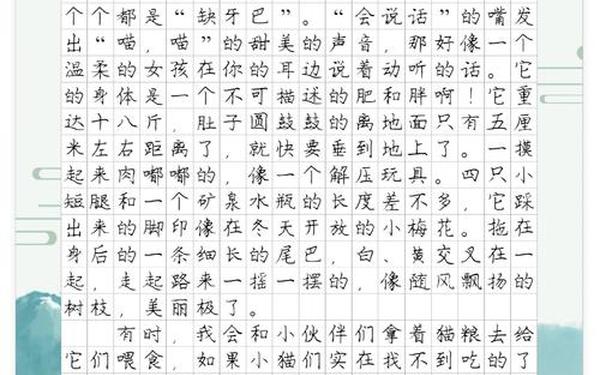 个个都是“缺牙巴”。“会说话”的嘴发
出“喵，喵”的甜美的声音，那好像一个
温柔的女孩在你的耳边说着动听的话。它
的身体是一个不可描述的肥和胖啊！它重
达十八斤，肚子圆鼓鼓的离地面只有五厘
米左右距离了，就快要垂到地上了。一摸
起来肉嘟嘟的，像一个解压玩具。四只小
短腿和一个矿泉水瓶的长度差不多，它踩
出来的脚印像在冬天开放的小梅花。拖在
身后的一条细长的尾巴，白、黄交叉在一
起，走起路来一摇一摆的，像随风飘扬的
树枝，美丽极了。
有时，我会和小伙伴们拿着猫粮去给
它们喂食，如果小猫们实在找不到吃的了